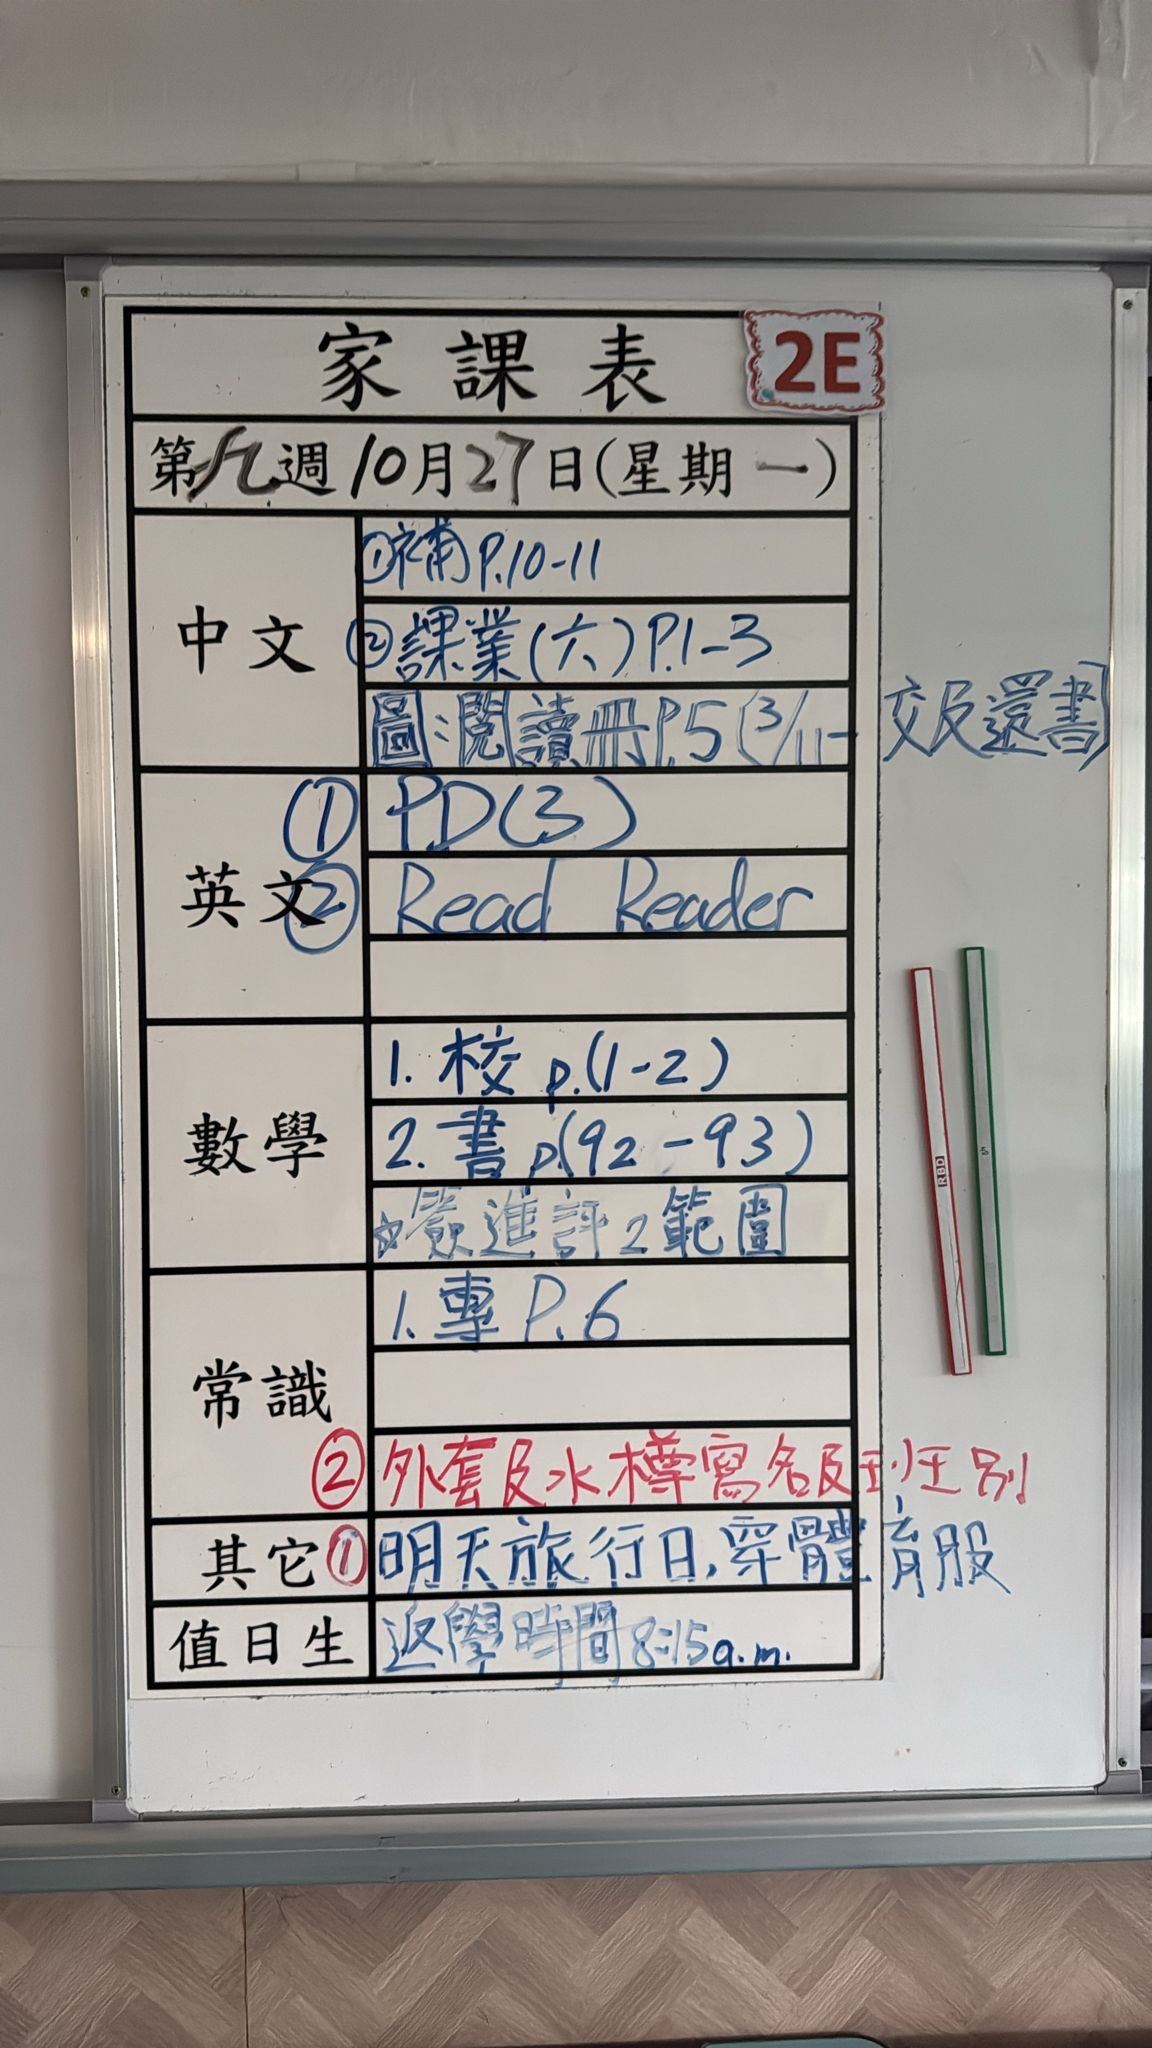 家課表 2E
第九週10月27日(星期一)
中文
①補P.10-11
②課業(六)P.1-3
圖:閱讀冊P.5(3/11-交及還書)
英文
① P.D(3)
② Read Reader
數學
1. 校 p.(1-2)
2. 書 p.(92-93)
☆簽進評2範圍
常識
1. 專 P.6
②外套及水樽寫名及班別
其它
①明天旅行日,穿體育服
值日生
返學時間8:15a.m.
RBD